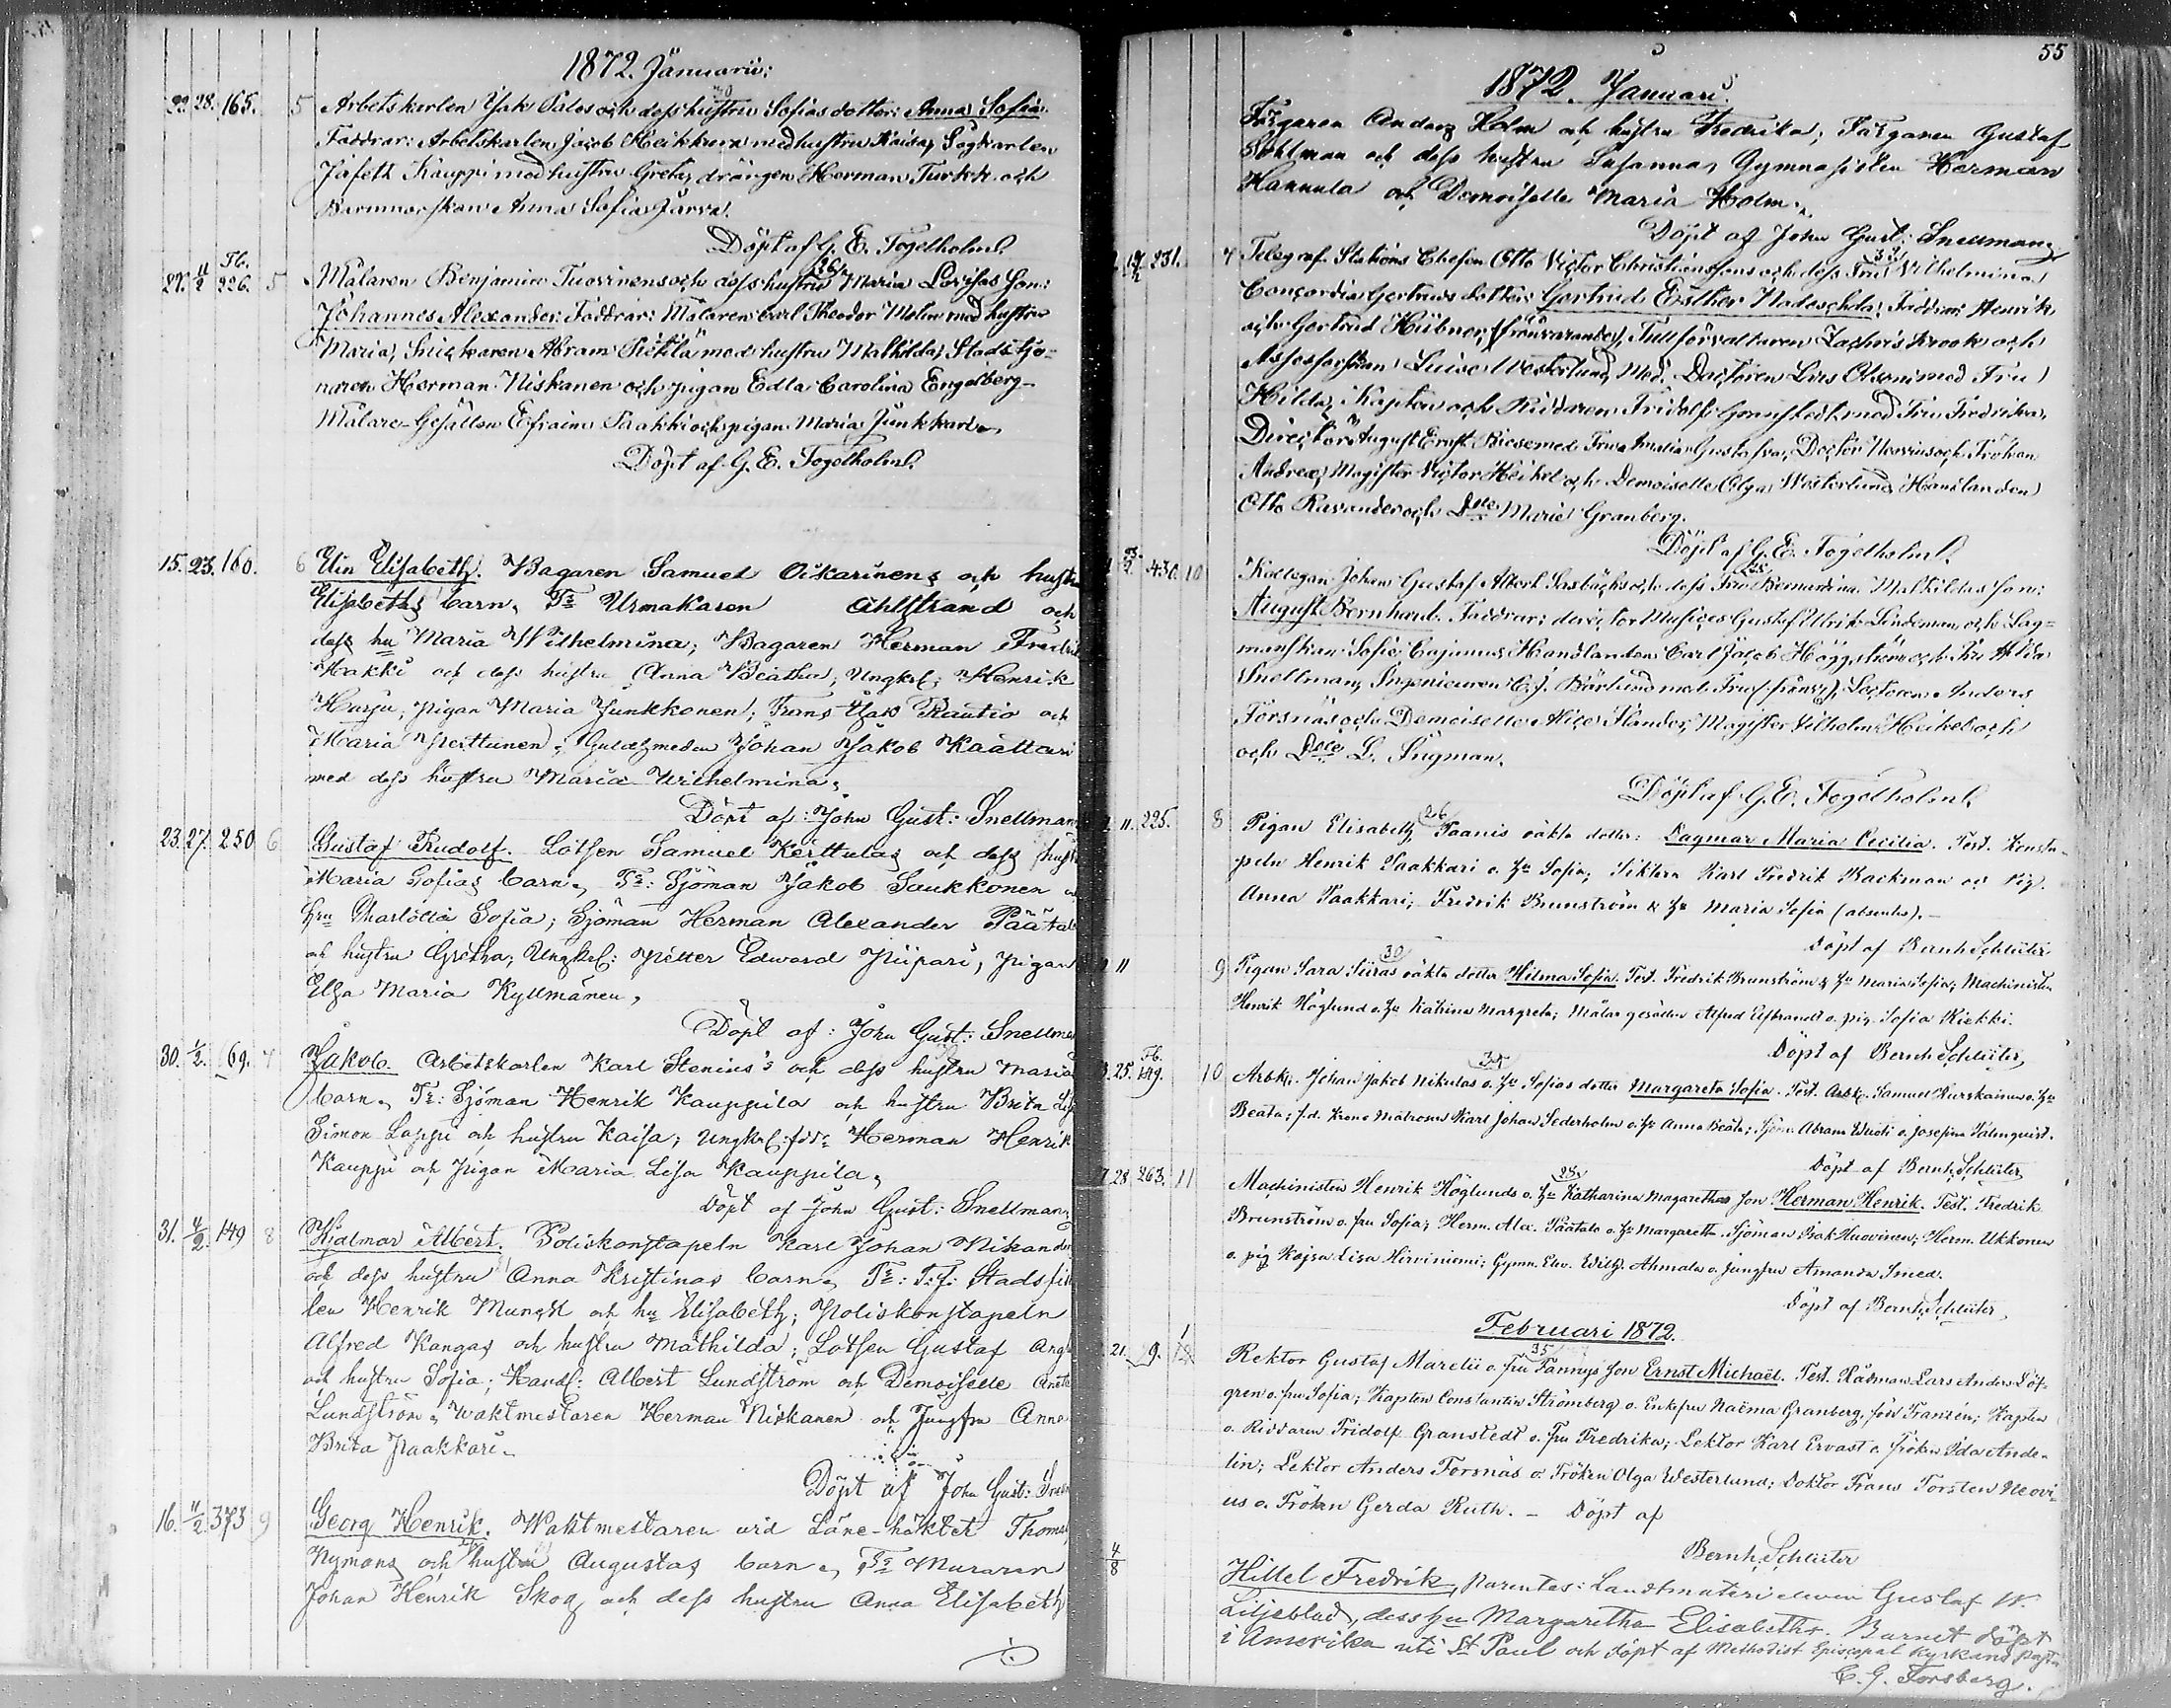 1872. Januarii:
22. 28. 165. 5 Arbetskarlen Isak Palos och dess hustru Sofias dotter: Anna Sofia.
Faddrar: Arbetskarlen Jacob Heikkinen med hustru Kaisa, Sågkarlen
Jafeth Kauppi med hustru Greta, drängen Herman Turkk och
Barnmorskan Anna Sofia Jarva.
Döpt af G. E. Fogelholm.
27. 11/2 Tb. 226. 5 Målaren Benjamin Tuovinens och dess hustru Maria Lovisas Son:
Johannes Alexander. Faddrar: Målaren Carl Theodor Molin med hustru
Maria, Snickaren Abram Pietilä med hustru Mathilda, Stadstje-
naren Herman Niskanen och pigan Edla Carolina Engelberg
Målare-Gesällen Efraim Paakki och pigan Maria Junkkari
Döpt af G. E. Fogelholm.
15. 23. 160. 6 Elin Elisabeth. Bagaren Samuel Oikarinens och hustru
Elisabeths barn. Frs Urmakaren Ahlstrand och
dess hu Maria Wilhelmina; Bagaren Herman Fredrik
Makki och dess hustru Anna Beatha; Ungkrl: Henrik
Harju, pigan Maria Junkkonen; Frans Isak Rautio och
Maria Perttunen; Guldsmeden Johan Jakob Kaattari
med dess hustru Maria Wilhelmina.
Döpt af: John Gust: Snellman
23. 27. 250 6 Gustaf Rudolf. Lotsen Samuel Kerttulas och dess hustru
Maria Sofias barn. Frs: Sjöman Jakob Saukkonen
hru Charlotta Sofia; Sjöman Herman Alexander Päätalo
och hustru Gretha; Ungkrl: Petter Edward Piipari, Pigan
Elsa Maria Kyllmänen.
Döpt af: John Gust: Snellman
30. 1/2. 69. 7 Jakob. Arbetskarlen Karl Stenius's och dess hustru Maria
barn. Frs: Sjöman Henrik Kauppila och hustru Brita
Simon Lappi och hustru Kaisa; Ungkrl: Herman Henrik
Kauppi och Pigan Maria Lisa Kauppila.
Döpt af John Gust: Snellman
31. 4/2. 149 8 Hjalmar Albert. Poliskonstapeln Karl Johan Nikander
och dess hustru Anna Kristinas barn. Frs: T:f: Stadsfis
len Henrik Munck och hu Elisabeth; Poliskonstapeln
Alfred Kangas och hustru Mathilda; Lotsen Gustaf
och hustru Sofia; Handl: Albert Lundström och Demoiselle
Lundström. Waktmestaren Herman Niskanen och Jungfru Anna
Brita Paakkari.
Döpt af John Gust:
16. 11/2 373 9 Georg Henrik. Waktmestaren vid Läne-häktet Thomas
Nymans och hustru Augustas barn. Frs Muraren
Johan Henrik Skog och dess hustru Anna Elisabeth
55
1872. Januari.
Färgaren Anders Holm och hustru Fredrika; Färgaren Gustaf
Pohlman och dess hustru Susanna, Gymnasisten Herman
Hannula och Demoiselle Maria Holm.
Döpt af John Gust: Snellman
231. 7 Telegraf Stations Chefen Otto Victor Christianssons och dess Fru Vilhelmina
Concordia Gertruds dotter: Gertrud Esther Nadeschda; Faddrar: Henrik
och Gertrud Hübner, (frånvarande), Tullförvaltaren Zachris Krook och
Assessorskan Luise Westerlund, Med. Doctoren Lars Olsoni med Fru
Hilda, Kapten och Riddaren Fridolf Granstedt med Fru Fredrika,
Director August Ernst Riese med Fru Amalia Gustafva, Doctor Neovius och Fröken
Andrea, Magister Victor Heikel och Demoiselle Olga Westerlund, Handlanden
Otto Ravander och Dlle Marie Granberg.
Döpt af G. E. Fogelholm.
430. 10 Kollegan Johan Gustaf Albert Sasbäcks och dess Fru Bernardina Mathildas Son:
August Bernhard. Faddrar: director Musices Gustaf Ulrik Lindeman och Lag-
manskan Sofie Cajanus, Handlanden Carl Jacob Häggström och Fru Hilda
Snellman, Ingenieuren C. J. Bärlund med Fru (frånv.), Lectoren Anders
Forsnäs och Demoiselle Alice Flander, Magister Vilhelm Heikel och
och Dlle L. Jugman.
Döpt af G. E. Fogelholm.
11. 225. 8 Pigan Elisabeth Paanis oäkta dotter: Dagmar Maria Cecilia. Test. Konsta-
peln Henrik Paakkari o. hu Sofia; Karl Fredrik Backman och Pig.
Anna Paakkari; Fredrik Brunström & hu Maria Sofia (absentes).
Döpt af Bernh. Schlüter
11 9 Pigan Sara Siiras oäkta dotter Hilma Sofia. Test. Fredrik Brunström & hu Maria Sofia; Machinisten
Henrik Höglund o. hu Katrina Margreta; Målar gesällen Alfred Elfbrandt o. pig. Sofia Kiekki.
Döpt af Bernh. Schlüter
25. Tb. 149. 10 Arbk. Johan Jakob Nikulas o. hu Sofias dotter Margareta Sofia. Test. Arbk. Samuel Hurskainen o. hu
Beata; f.d. Krono Matrosen Karl Johan Sederholm o. hu Anna Beata; Sjöm. Abram Weidi o. Josefina Palmquist.
Döpt af Bernh. Schlüter
28 263. 11 Machinisten Henrik Höglunds o. hu Katharina Magarethas son Herman Henrik. Test. Fredrik
Brunström o. fru Sofia; Herm. Alex. Päätalo o. hu Margaretha. Sjöman Isak Huovinen; Herm. Ukkonen
o. pig Kajsa Lisa Hirviniemi; Gymn. Elev. Wilh. Ahmala o. jungfru Amanda Smed.
Döpt af Bernh. Schlüter
Februari 1872.
21. 9. 1 Rektor Gustaf Marelii o. fru Fannys son Ernst Michaël. Test. Rådman Lars Anders Löf-
gren o. fru Sofia; Kapten Constantin Strömberg o. Enkefru Naëma Granberg född Franzén; Kapten
o. Riddaren Fridolf Granstedt o. fru Fredrika; Lektor Karl Ervast o. fröken Ida Ande-
lin; Lektor Anders Forsnäs o. Fröken Olga Westerlund; Doktor Frans Torsten Neovi-
us o. Fröken Gerda Ruth. – Döpt af
Bernh. Schlüter
4/8 Hillel Fredrik, Parentes: Landtmäteri eleven Gustaf W.
Liljeblad, dess hu Margaretha Elisabeths. Barnet födt
i Amerika uti St Paul och döpt af Methodist Episcopal Kyrkans Pastor
C. G. Forsberg.